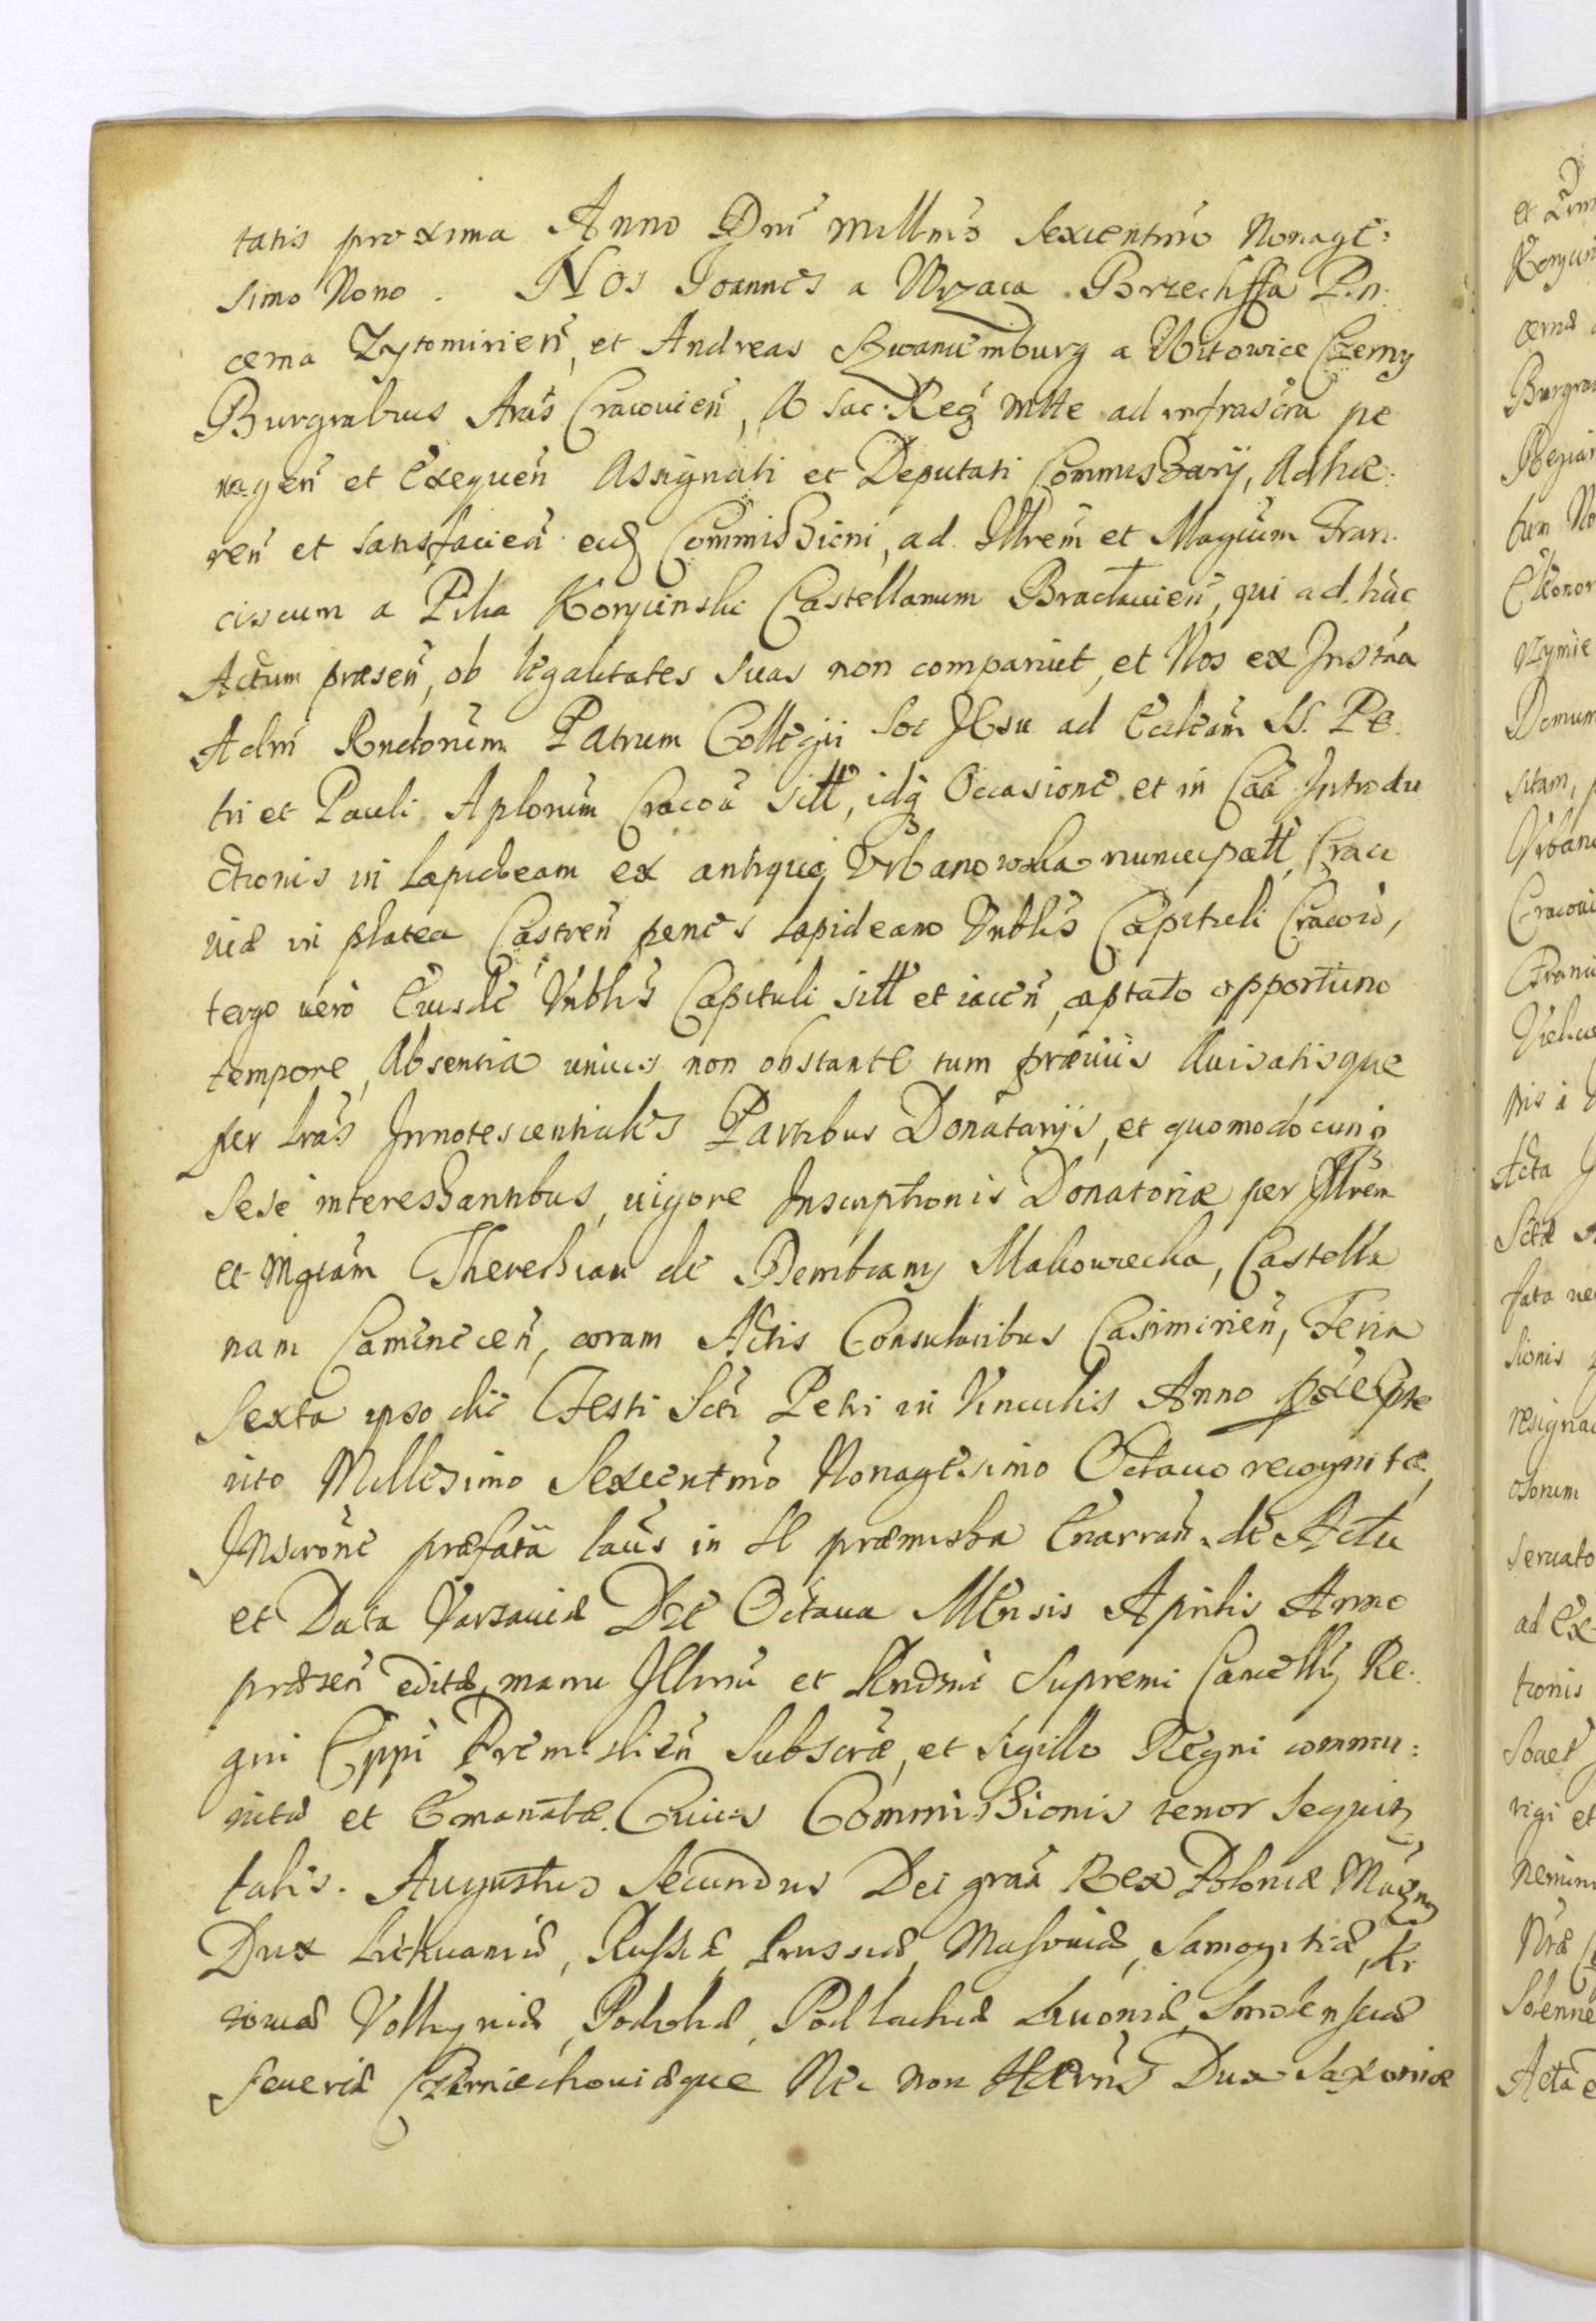 tatis proxima Anno Dni Millmo Sexcentmo Nonage:
simo Nono. Nos Joannes a Wrzaca Brzechffa Pin:
cerna Zytomirien, et Andreas Szwancemburg a Witowice Czerny
Burgrabius Arcis Cracouien, A Sac: Reg Mtte ad infrascra pe
ragen et Exequen Assignati et Deputati Commissarij, Adhæ:
ren et satisfacien eid Commissioni, ad Illrem et Magcum Fran:
ciscum a Pilca Korycinski Castellanum Braclauien, qui ad hũc
Actum præsen, ob legalitates suas non comparuit, et Nos ex Instãa
Adm Rndorum Patrum Collegii Soc JEsu ad Eccleam SS. Pe
tri et Pauli Aplorum Cracou sitt, idq Occasione et in Caa Introdu
ctionis in Lapideam ex antiquo Vrbanowska nuncupatt, Craco
uiæ in platea Castren penes Lapideam Vnblis Capituli Cracou,
tergo uerò Eiusdē Vnblis Capituli sitt et iacen, captato opportuno
tempore, Absentia unius non obstante tum præuiis Auisatisque
per Lras Innotescentiales Partibus Donatarijs, et quomodocunq
Sese interessantibus, uigore Inscriptionis Donatoriæ per Illrem
et Mgcam Theressiam de Dembiany Makowiecka, Castella
nam Camenecen, coram Actis Consularibus Casimirien, Feria
Sexta ipso die Festi Scti Petri in Vinculis Anno præte
rito Millesimo Sexcentmo Nonagesimo Octauo recognitæ,
Inscrone præfata latius in se præmissa Enarran. de Actu
et Data Varsauiæ Die Octaua Mensis Aprilis Anno
præsen editæ, manu Illmi et Rndmi Supremi Cancellrij Re:
gni Eppi Premislien Subscræ, et Sigillo Regni commu:
nitæ et Emanatæ. Cuius Commissionis tenor sequitr
talis. Augustus Secundus Dei grãa Rex Poloniæ Magnus
Dux Lithuaniæ, Russiæ, Prussiæ, Masouiæ, Samogitiæ, Ki
iouiæ Volhyniæ, Podoliæ, Podlachiæ Liuoniæ, Smolensciæ
Seueriæ Czerniechouiæque Nec non Hærus Dux Saxoniæ